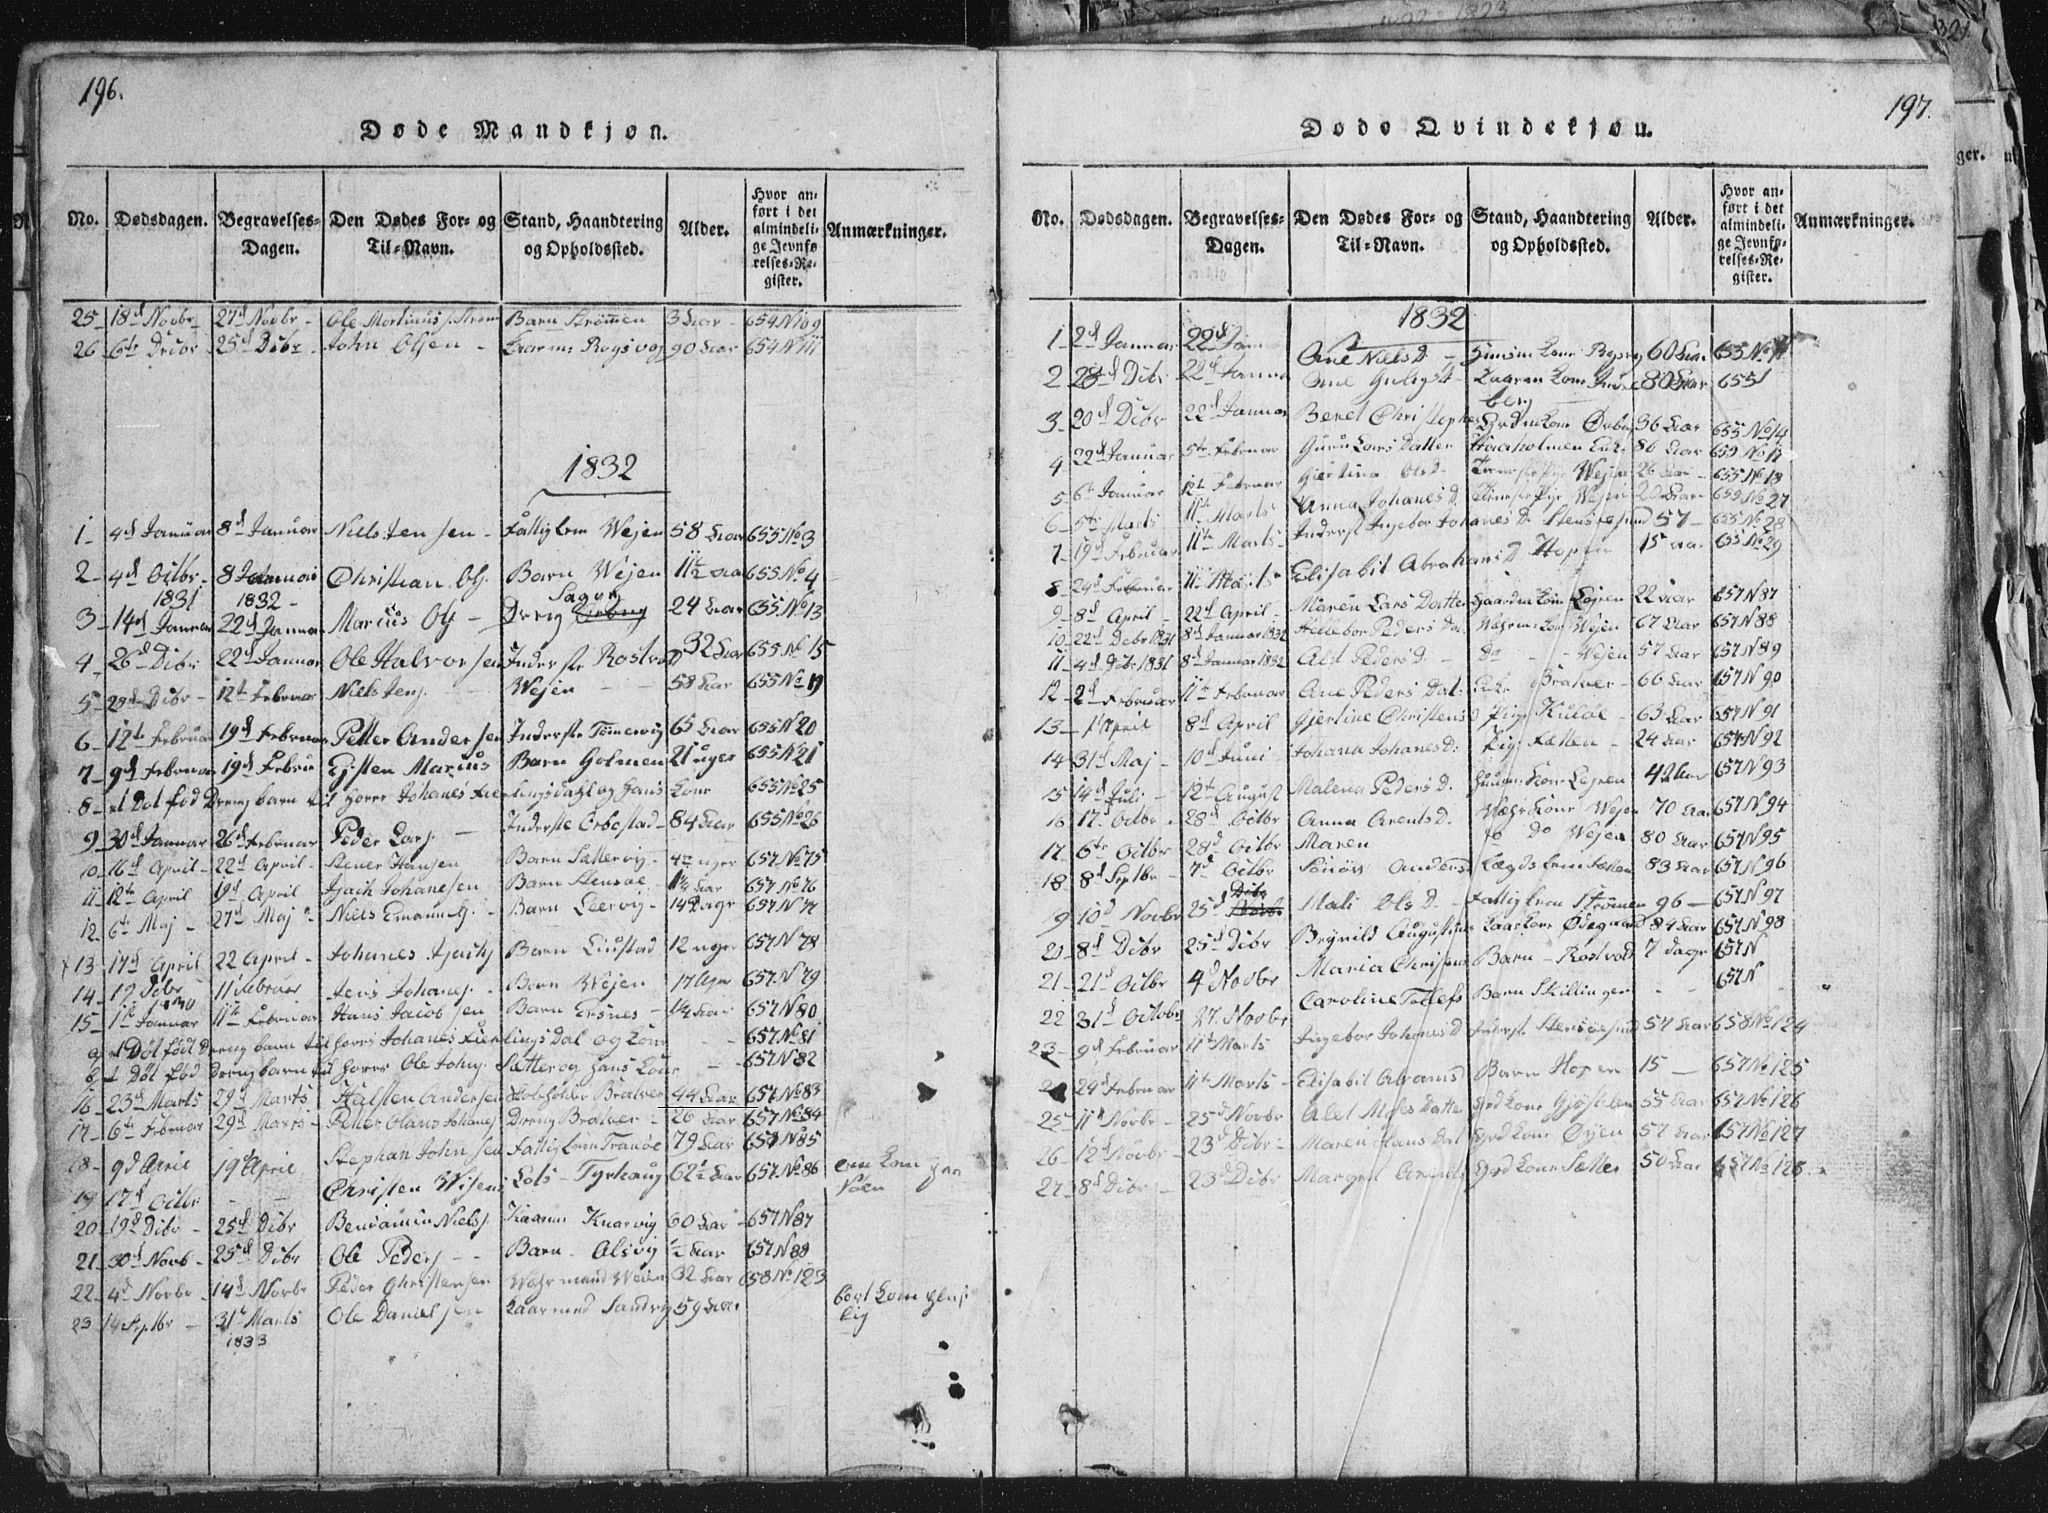 196.
Døde Mandkjøn.
No. Dødsdagen. Begravelses-Dagen. Den Dødes For- og Til-Navn. Stand, Haandtering og Opholdssted. Alder. Hvor anført i det almindelige Jevnførelses-Register. Anmærkninger.
25 18d Novbr 27d Novbr Ole Martinus Barn Strømmen 3 Aar 654 N109
26 6te Decbr 25d Dcbr John Olsen 90 Aar 654 N111
1832
1 4d Januar 8d Januar Niels Jensen Fattiglem Wejen 58 Aar 655 No 3
2 4d Octbr 8 Januar Christian Ols. Barn Wejen 11½ 655 No 4
1831 1832
3 14d Januar 22d Januar Marius Ols Dreng 24 Aar 655 No 13
4 26d Dcbr 22d Januar Ole Halvorsen Inderste Rostvold 32 Aar 655 No 15
5 Dcbr 12te Februar Niels Jens. Wejen 58 Aar 655 No 19
6 12te Februar 19d Februar Petter Andersen Inderste Tømmervig 65 Aar 655 N20
7 9d Februar 19d Febru Marius Barn Holmen 2 Uger 655 N21
8 et Døt fød Drengbarn til Herr Johanes Fierlingsdahl og Hans Kone 655 No 25
9 30d Januar 26d Februar Peder Lars. Inderste Orbostad 84 Aar 655 No 26
10 16d April 22d April Stener Hansen Barn Sættervig 4 uger 657 No 75
11 12te April 19d April Isach Johanesen Barn Stensøe 1¼ Aar 657 No 76
12 6te Maj 27d Maj Niels Emann Barn Leervig 14 Dage 657 N 77
13 17d April 22 April Johanes Isachs Barn Liustad 12 uger 657 N 78
14 17 Dcbr 11 Februar Jens Johanes. Barn Wejen 17 Uger 657 N 79
1830
15 1te Januar 11te Februar Hans Jacobsen Barn Ersnes 1¼ Aar 657 N 80
a et Døt født Dreng barn til Herrs Johanes Fierlings Dal og Kone 657 No 81
b 1 Døt fød Dreng barn til Herrer Ole Johns. Sætter og Hans Kone 657 N 82
16 23d Marts 29d Marts Halsten Andersen Bratvær 44 Aar 657 No 83
17 6te Februar 29d Marts Petter Olaus Johanes Dreng Bratvær 26 Aar 657 No 84
18 9d April 19d April Stephan Johnsen Fattiglem Tranøe 79 Aar 657 N 85
19 17d Octbr Christen Lots Tyrhaug 62½ Aar 657 No 86 om kom paa
20 19d Dcbr 25d Dcbr Beniamin Niels. Knarvig 60 Aar 657 N87
21 30d Novb 25d Dcbr Ole Peders Barn Alsvig ½ Aar 657 N 88
22 4d Novbr 14d Novbr Peder Christensen Wejen 32 Aar 658 No 123
23 14 Septbr 31te Marts Ole Danielsen Sandvig 59 Aar bort kom
1833
197.
Døde Qvindekjøn.
No. Dødsdagen. Begravelses-Dagen. Den Dødes For- og Til-Navn. Stand, Haandtering og Opholdssted. Alder. Hvor anført i det almindelige Jevnførelses-Register. Anmærkninger.
1832
1 2d Januar 22d Jan Ane Niels D 60 Aar 655 No
2 28d Dcbr 22d Januar Ane 80 Aar 655
3 20d Dcbr 22d Januar Beret Christophers 36 Aar 655 No 14
4 22d Januar 5te Februar Guru Lars Datter Haaholmen Enke 86 Aar 655 No 17
5 6te Januar 12te Februar Gjertina Ols D. Wejen 26 Aar 655 No 18
6 5te Marts 11te Marts Anna Johanes D. Wejen 20 Aar 655 No 27
7 19d Februar 11te Marts Inderst Ingebor Johanes D Stensøesund 57 655 No 28
8 24d Februar 11te Marts Elisabet Abrahams D Hopen 15 655 No 29
9 8d April 22d April Maren Lars Datter Leiren 22 Aar 657 N87
10 22d Debr 1831 8d Januar 1832 Hellebor Peders Da. Wejen 67 Aar 657 N88
11 4d Dcbr 1831 8d Januar 1832 Peders D. Do Wejen 57 Aar 657 N89
12 2d Februar 11te Februar Ane Peders Dat. Enke Bratvær 66 Aar 657 N 90
13 1te April 8d April Gjertine Christens D Pige Kuløe 63 Aar 657 N 91
14 31d Maj 10d Juni Johana Johanes D. Pige Sætten 24 Aar 657 N92
15 14d Juli 12te August Malena Peders D. Leiren 657 N 93
16 17d Octbr 28d Octbr Anna Arents D. Wejen 70 Aar 657 N 94
17 6te Octbr 28d Octbr Maren Do Wejen 80 Aar 657 N95
18 8d Septbr 7d Octbr Anders D Lægdslem 83 Aar 657 N 96
9 10d Novbr 25d Dcbr Mali Ols D. Fattiglem Strømen 96 657 N 97
20 8d Dcbr 25d Dcbr Brynild Augustinus Ødegaard 84 Aar 657 N 98
21 21d Octbr 4d Novbr Maria Chrisens Barn Rostvold 7 dage 657 N
22 31d Octobr 27. Novbr Caroline Tollefs Barn Skillinger 657 N
23 9d Februar 11te Marts Ingebor Johanes D Inderst Stensøesund 57 Aar 658 No 124
2 29d Februar 11te Marts Elisabet Abrams D Barn Hopen 15 657 No 125
25 11d Novbr 25d Novbr Alet Moses Datter Grd Kone Gjøstøen 55 Aar 657 No 126
26 12d Novbr 23d Dcbr Maren Hans Dat Grd Kone Øyen 57 Aar 657 No 127
27 8d Dcbr 23d Dcbr Margret Arents Grd Kone Sætter 50 Aar 657 No 128